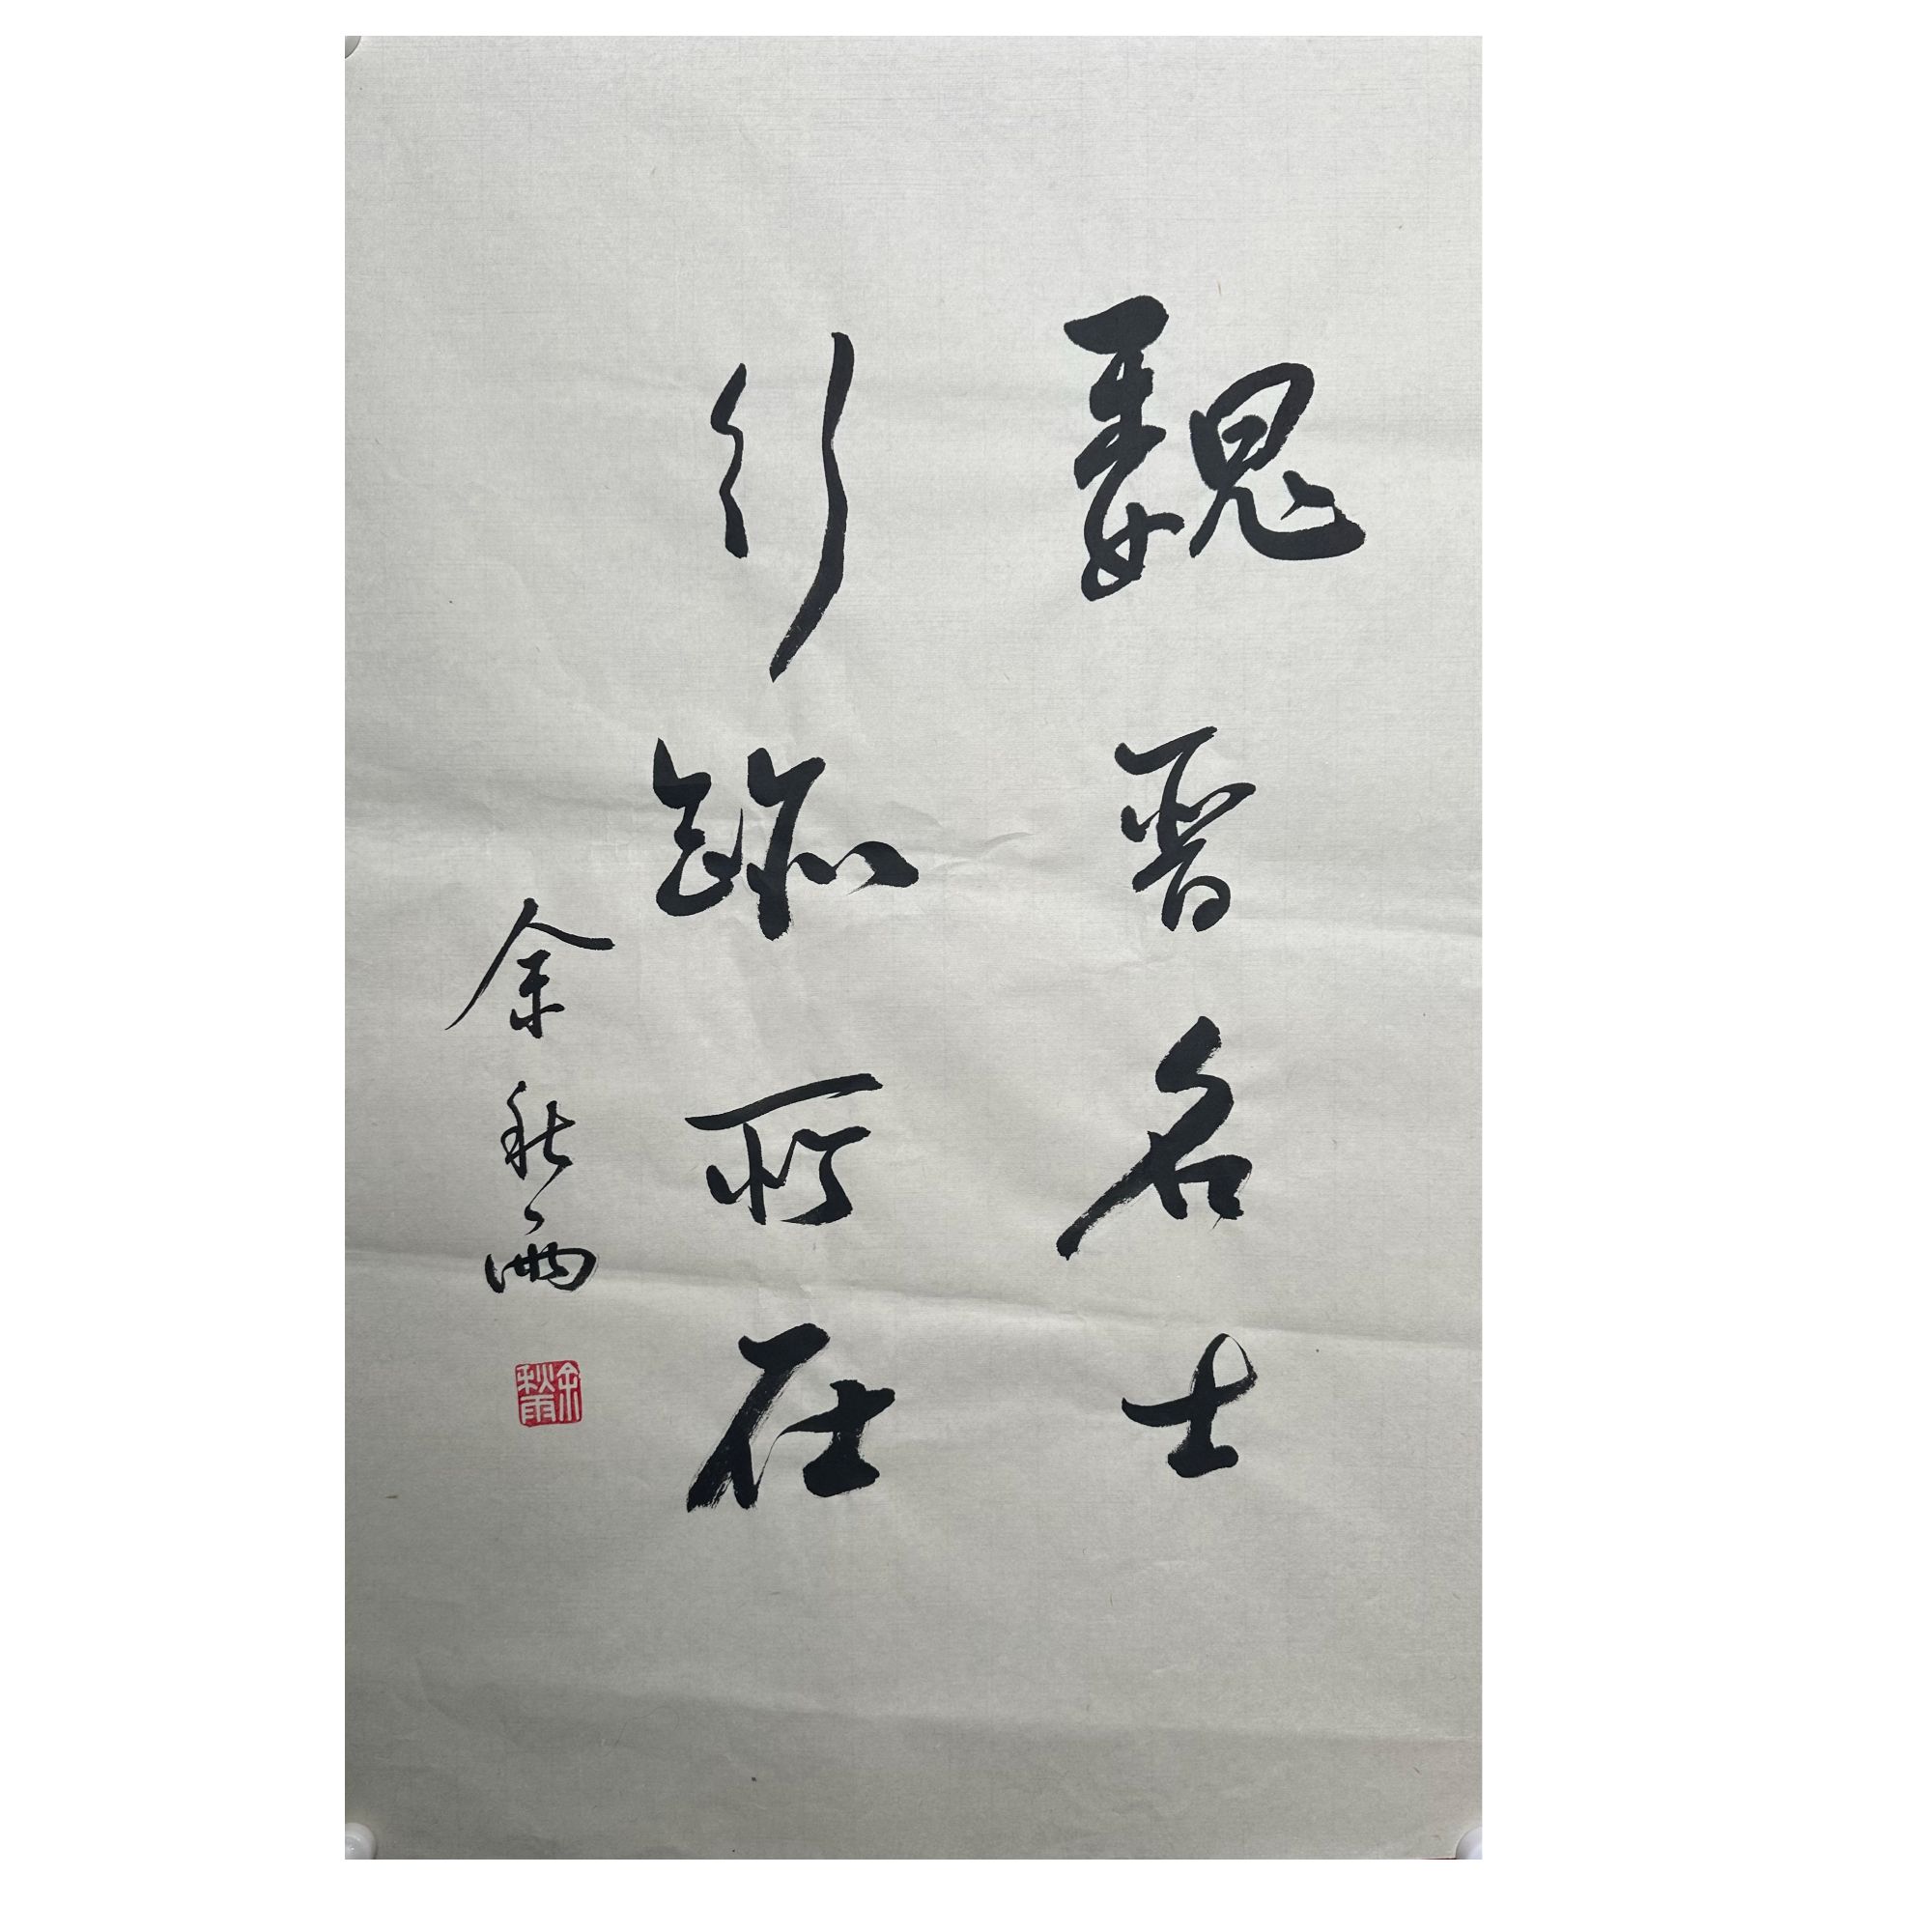 魏晋名士
行跡所在
余秋雨
余秋雨